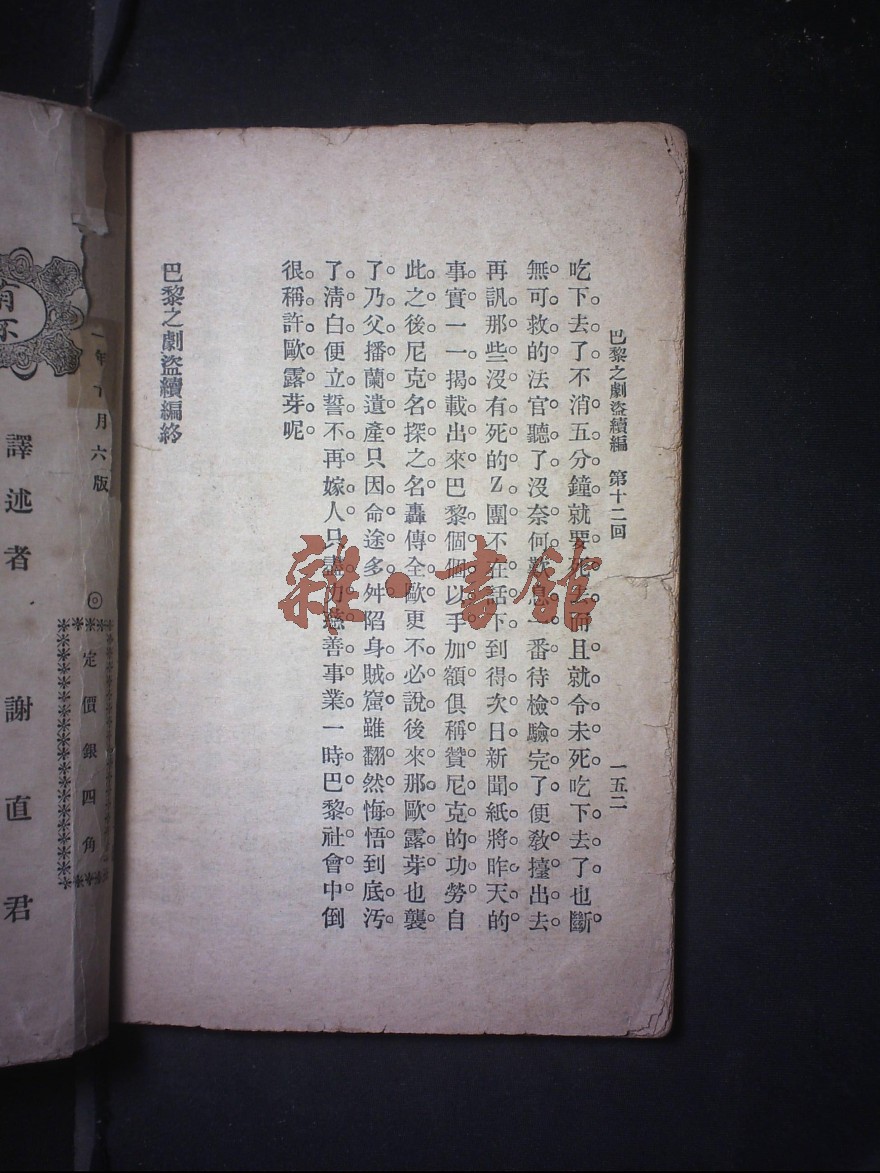 巴黎之劇盜續編 第十二回 一五二
吃下去了不消五分鐘就要死了而且就令未死吃下去了也斷
無可救的法官聽了沒奈何歎息一番待檢驗完了便教擡出去
再訊那些沒有死的Z團不在話下到得次日新聞紙將昨天的
事實一一揭載出來巴黎個個以手加額俱稱贊尼克的功勞自
此之後尼克名探之名轟傳全歐更不必說後來那歐露芽也襲
了乃父播蘭遺產只因命途多舛陷身賊窟雖翻然悔悟到底汚
了清白便立誓不再嫁人只盡力慈善事業一時巴黎社會中倒
很稱許歐露芽呢。
巴黎之劇盜續編終
年十月六版
◎定價銀四角
譯述者 謝直君
雜·書館